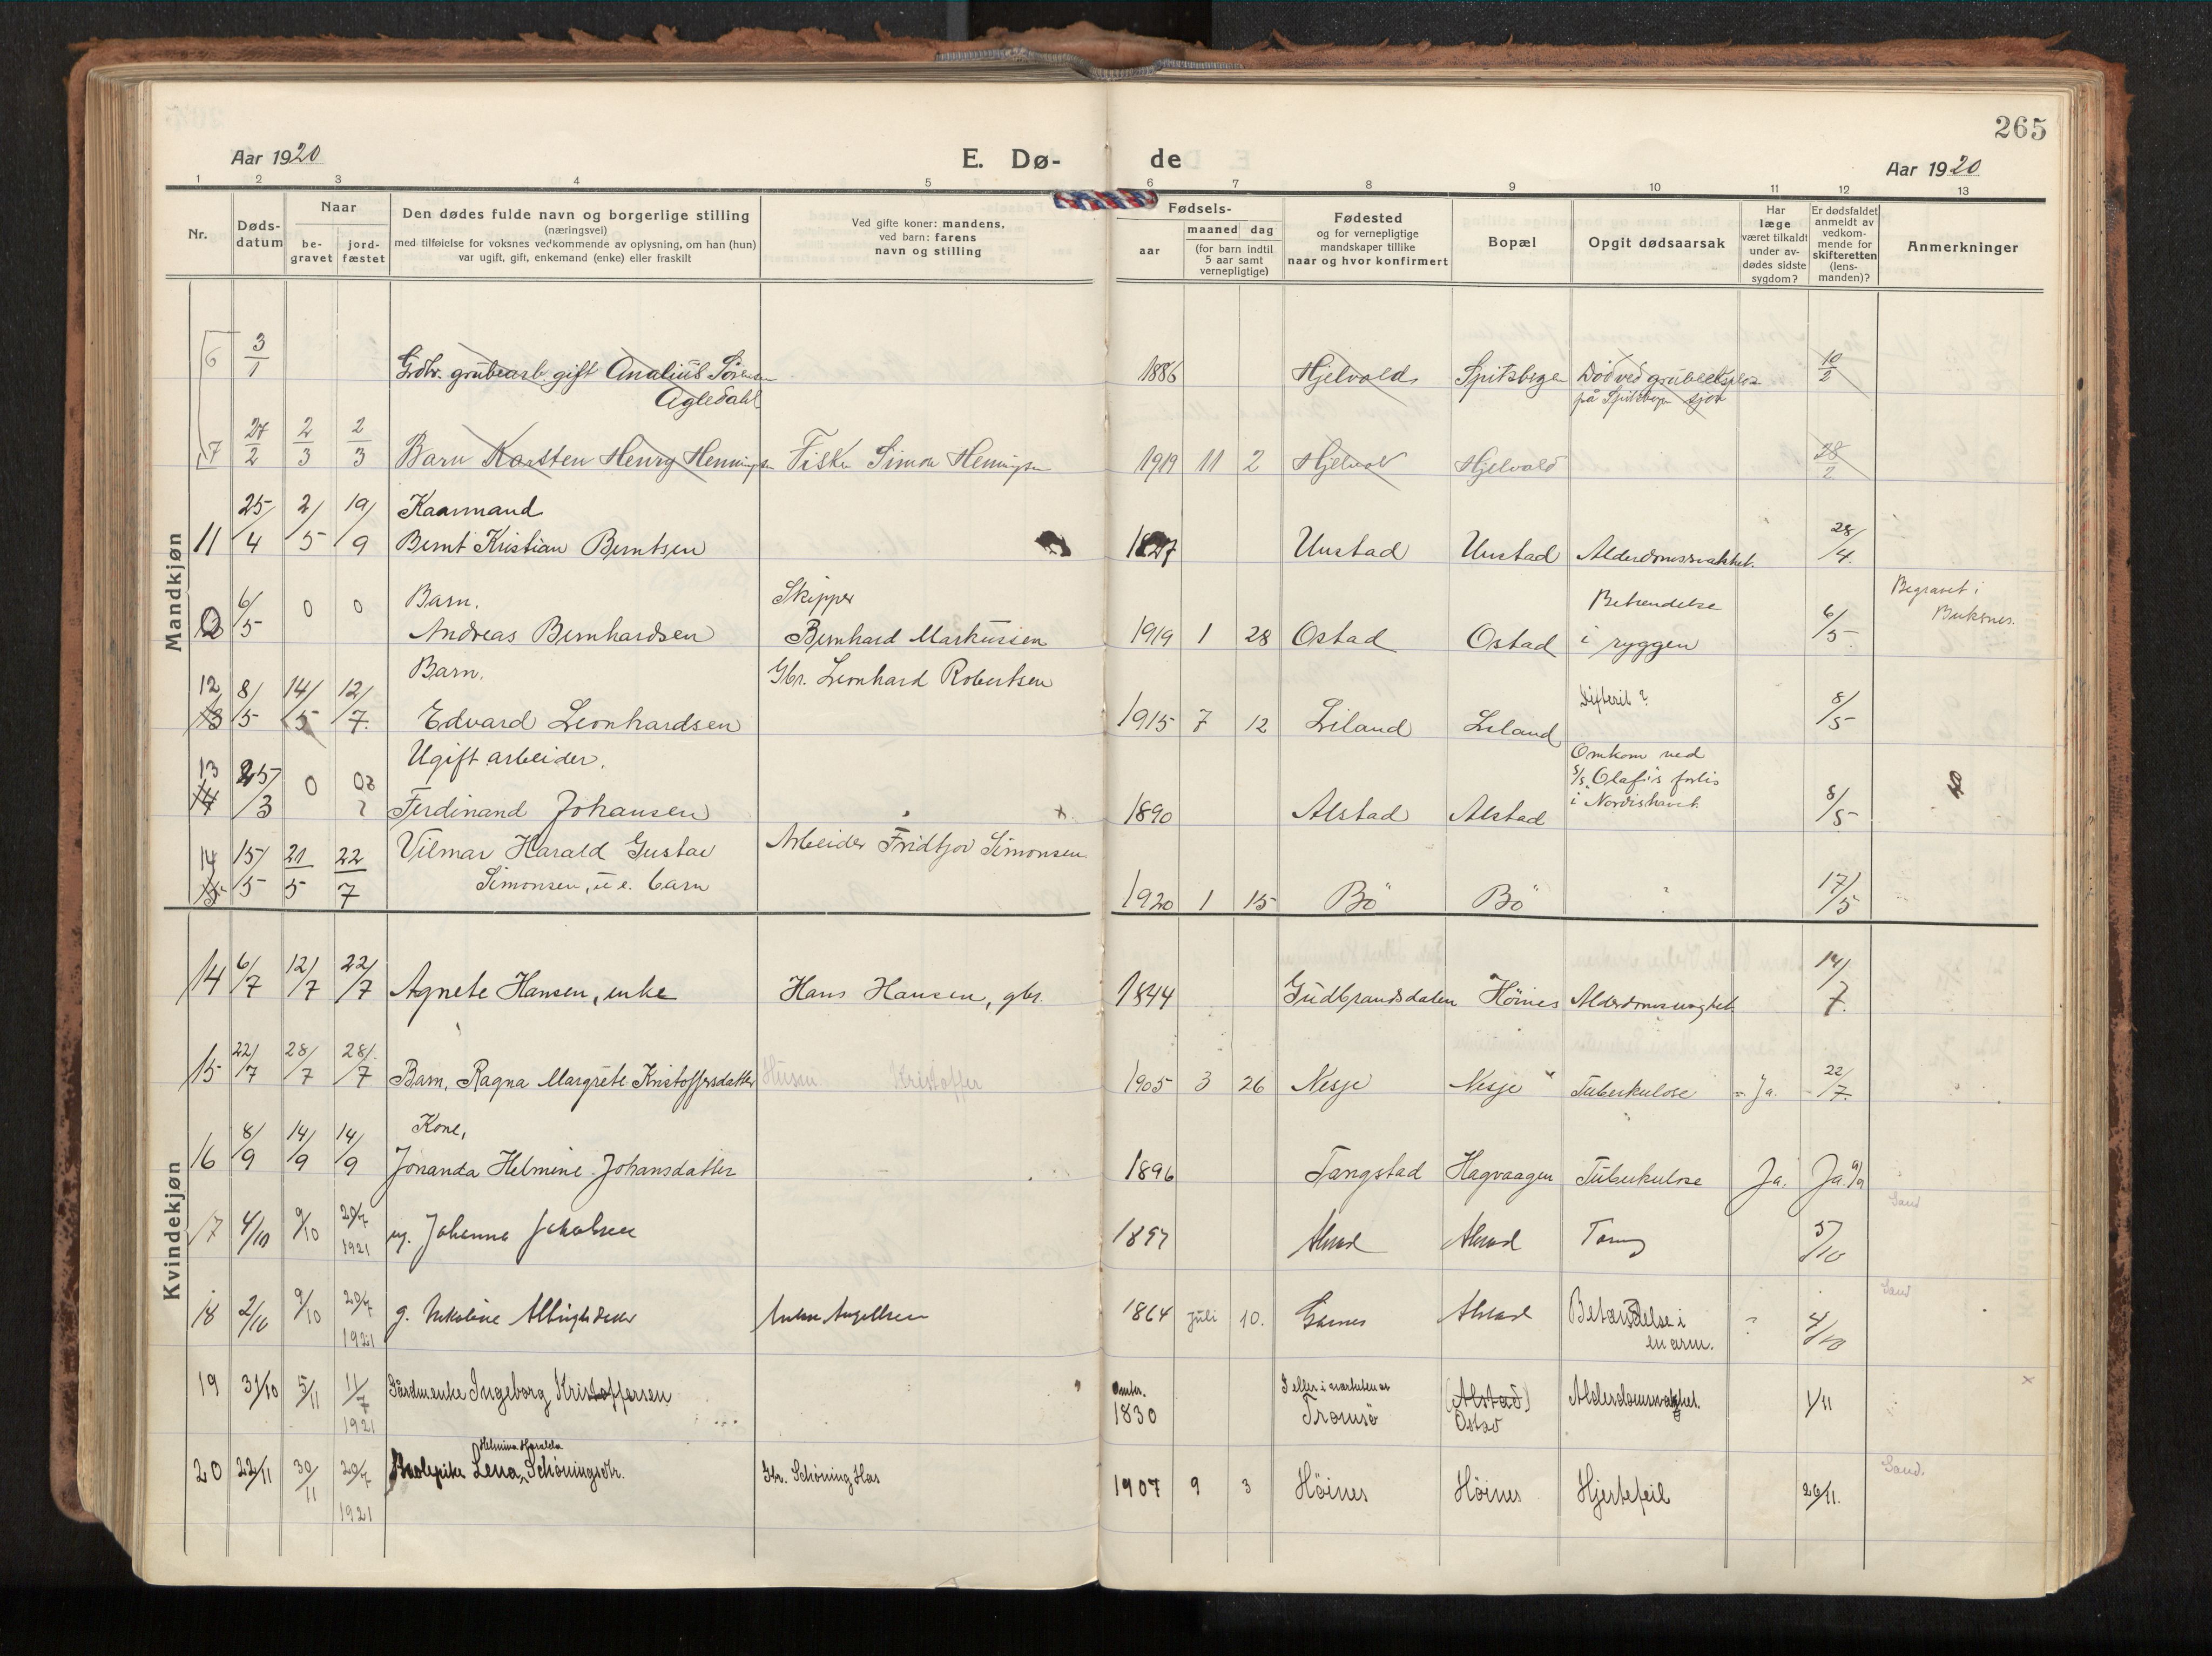 265
Aar 1920 E. Dø- de Aar 1920
1 2 3 4 5 6 7 8 9 10 11 12 13
Nr.
Døds-
datum
Naar
be-
gravet
jord-
fæstet
Den dødes fulde navn og borgerlige stilling
(næringsvei)
med tilføielse for voksnes vedkommende av oplysning, om han (hun)
var ugift, gift, enkemand (enke) eller fraskilt
Ved gifte koner: mandens,
ved barn: farens
navn og stilling
Fødsels-
aar
maaned dag
(for barn indtil
5 aar samt
vernepligtige)
Fødested
og for vernepligtige
mandskaper tillike
naar og hvor konfirmert
Bopæl
Opgit dødsaarsak
Har
læge
været tilkaldt
under av-
dødes sidste
sygdom?
Er dødsfaldet
anmeldt av
vedkom-
mende for
skifteretten
(lens-
manden)?
Anmerkninger
Mandkjøn
6 3/1 Grdbr. grubearb. gift Analius Sørensen 1886 Hjelvold Spitsbergen Død ved grubeeksplosjon 10/2
Agledahl på
7 27/2 2/3 2/3 Barn Karsten Henry Henningsen Fisker Simon Henningsen 1919 11 2 Hjelvold Hjelvold 28/2
Kaarmand
11 25/4 2/5 19/9 Bernt Kristian Berntsen 1827 Unstad Unstad Alderdomssvakhet. 28/4
Barn. Skipper Betændelse Begravet i
6/5 0 0 Andreas Bernhardsen Bernhard Markussen 1919 1 28 Ostad Ostad i ryggen 6/5 Buksnes.
Barn. Gbr. Leonhard Robertsen Difterit?
12 13 8/5 14/5 12/7 Edvard Leonhardsen 1915 7 12 Liland Liland 8/5
Ugift arbeider. Omkom ved
S/S "Olaf"s forlis
13 14 25/3 0 Ferdinand Johansen 1890 Alstad Alstad i Nordishavet. 8/5
14 15 15/5 21/5 22/7 Vilmar Harald Gustav Arbeider Fridtjov Simonsen.
Simonsen, u e. barn 1920 1 15 Bö Bö ? 17/5
Kvindekjøn
14 6/7 12/7 22/7 Agnete Hansen, enke Hans Hansen, gbr. 1844 Gudbrandsdalen Höines 14/7
15 22/7 28/7 28/7 Barn, Ragna Margrete Kristoffersdatter Kristoffer 1905 3 26 Nesje Nesje Tuberkulose Ja. 22/7
Kone,
16 8/9 14/9 14/9 Jonanda Helmine Johansdatter 1896 Tangstad Hagvaagen Tuberkulose Ja. Ja. 9/9
Sand
17 4/10 9/10 20/7 1921 ug. Johanna Jakobsen 1897 Alstad Alstad 5/10
Sand
18 2/10 9/10 20/7 1921 g. Nikoline 1864 juli 10. Alstad Betændelse i ? 4/10
en arm.
19 31/10 5/11 11/7 1921 Gårdmenke Ingeborg Kristoffersen omtr. 1830 I eller i nærheten av (Alstad) Alderdomssvakhet. 1/11
Tromsö Ostad
Helmina Haralda Sand.
20 22/11 30/11 20/7 1921 Skolepike Lena Schöningsdtr. Gbr. Schöning 1907 9 3 Höines Höines Hjertefeil 26/11.